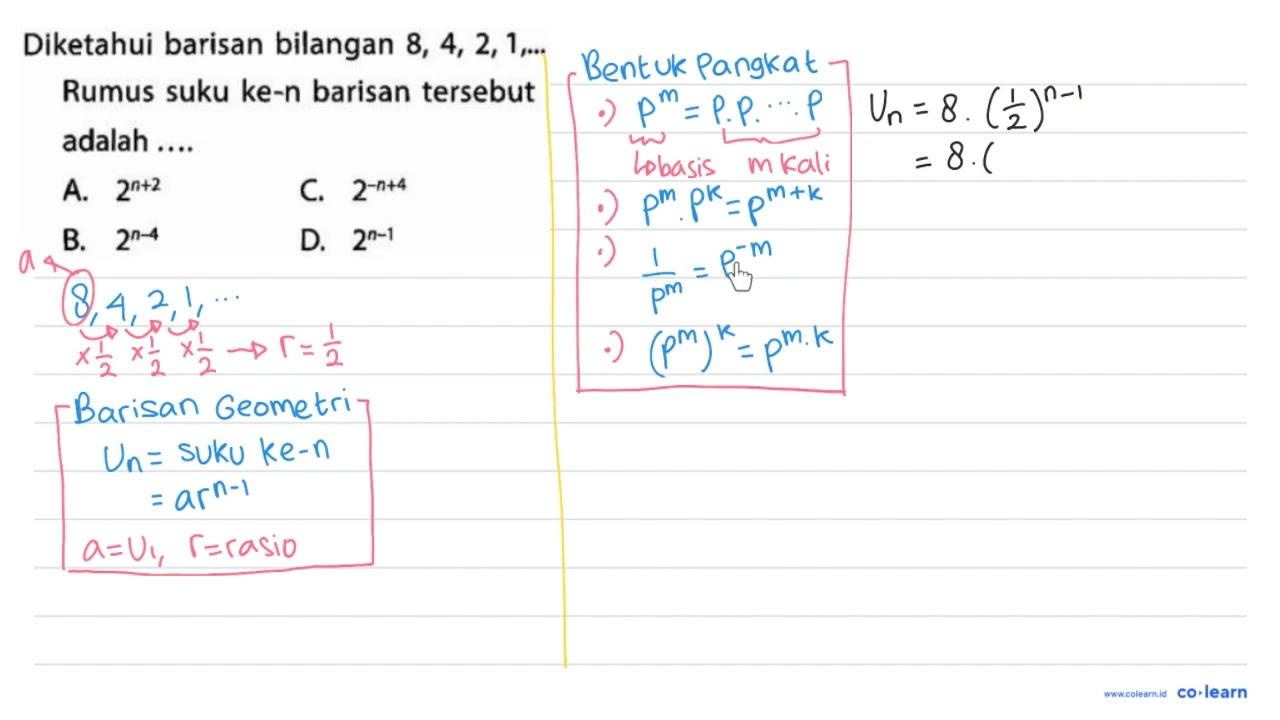 Diketahui barisan bilangan 8, 4, 2, 1,...
Rumus suku ke-n barisan tersebut
adalah ....
A. 2^{n+2} C. 2^{-n+4}
B. 2^{n-4} D. 2^{n-1}
a
8, 4, 2, 1, ...
×1/2 ×1/2 ×1/2 → r = 1/2
Barisan Geometri
Un = suku ke-n
= ar^{n-1}
a = U1, r = rasio
Bentuk Pangkat
•) p^m = p.p. ... .p
↳basis m kali
•) p^m . p^k = p^{m+k}
•) 1/p^m = p^{-m}
•) (p^m)^k = p^{m.k}
Un = 8 . (1/2)^{n-1}
= 8 . (
www.colearn.id co·learn